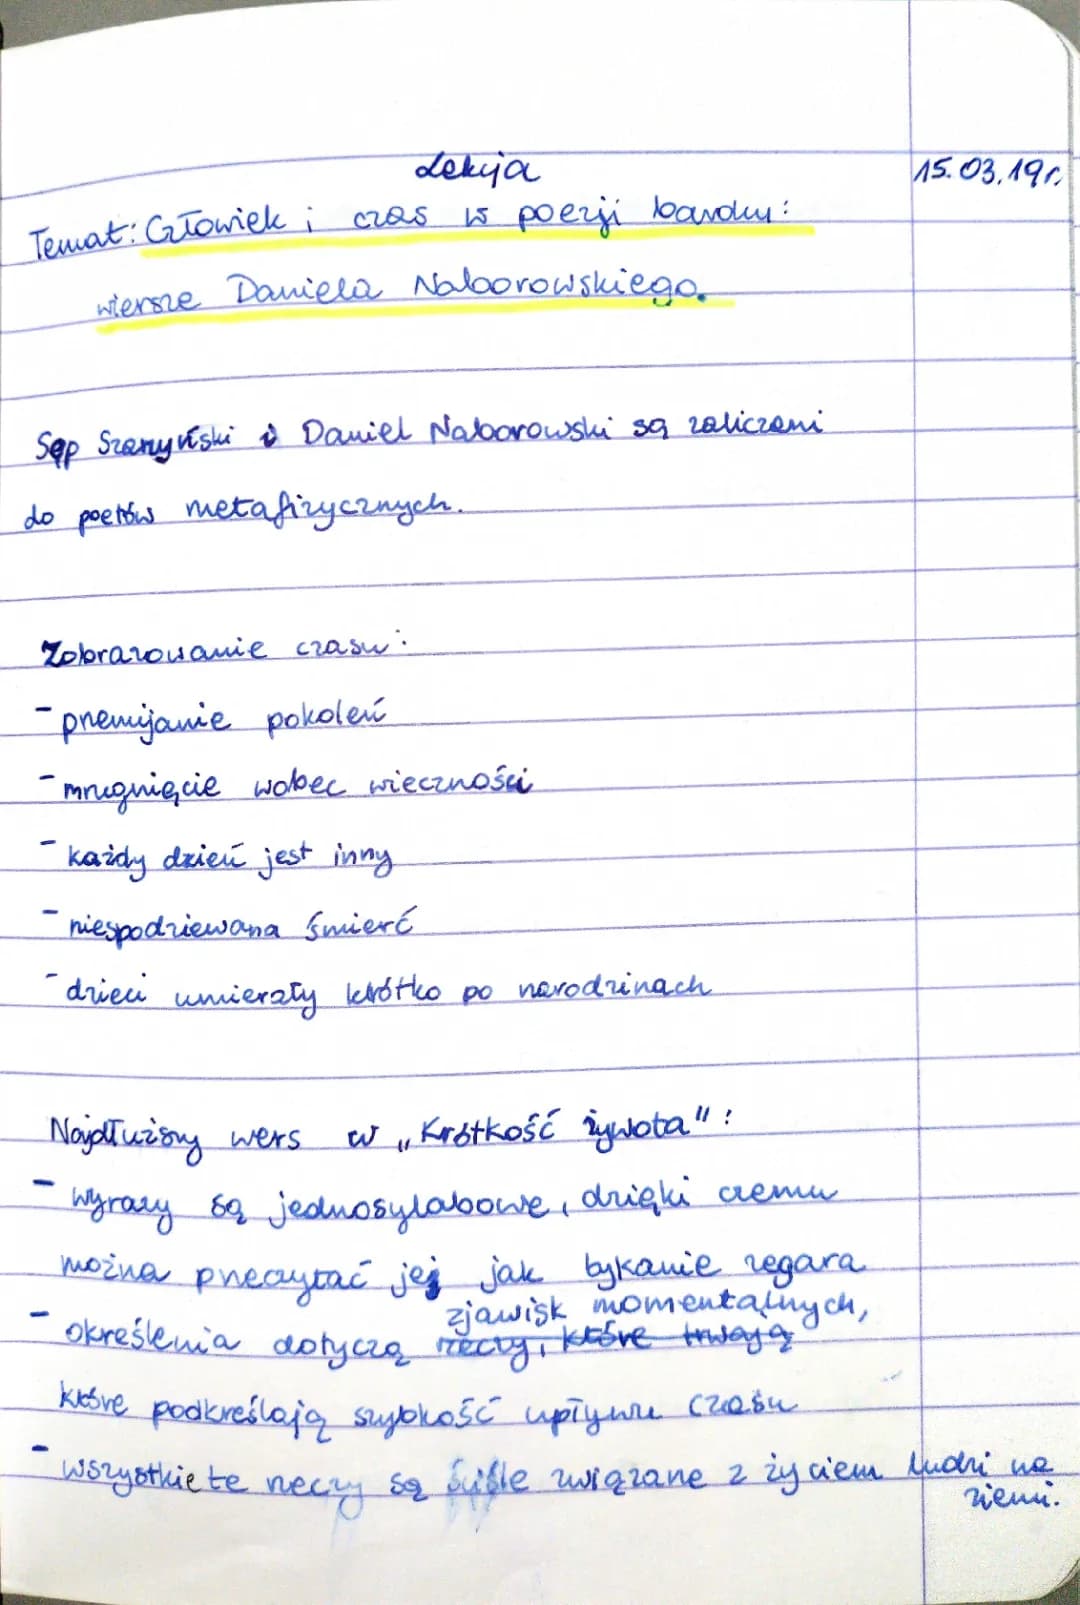 Lekcja
15.03.19r.
Temat: Człowiek i czas w poezji baroku:
wiersze Daniela Naborowskiego.
Sęp Szarzyński i Daniel Naborowski są zaliczani
do poetów metafizycznych.
Zobrazowanie czasu:
- przemijanie pokoleń
- mrugnięcie wobec wieczności
- każdy dzień jest inny
- niespodziewana śmierć
- dzieci umierały krótko po narodzinach
Najdłuższy wers w „Krótkość żywota":
- wyrazy są jednosylabowe, dzięki czemu
można przeczytać jej jak tykanie zegara
- określenia dotyczą zjawisk momentalnych,
rzeczy, które trwają
które podkreślają szybkość upływu czasu
- wszystkie te rzeczy są ściśle związane z życiem ludzi na
ziemi.